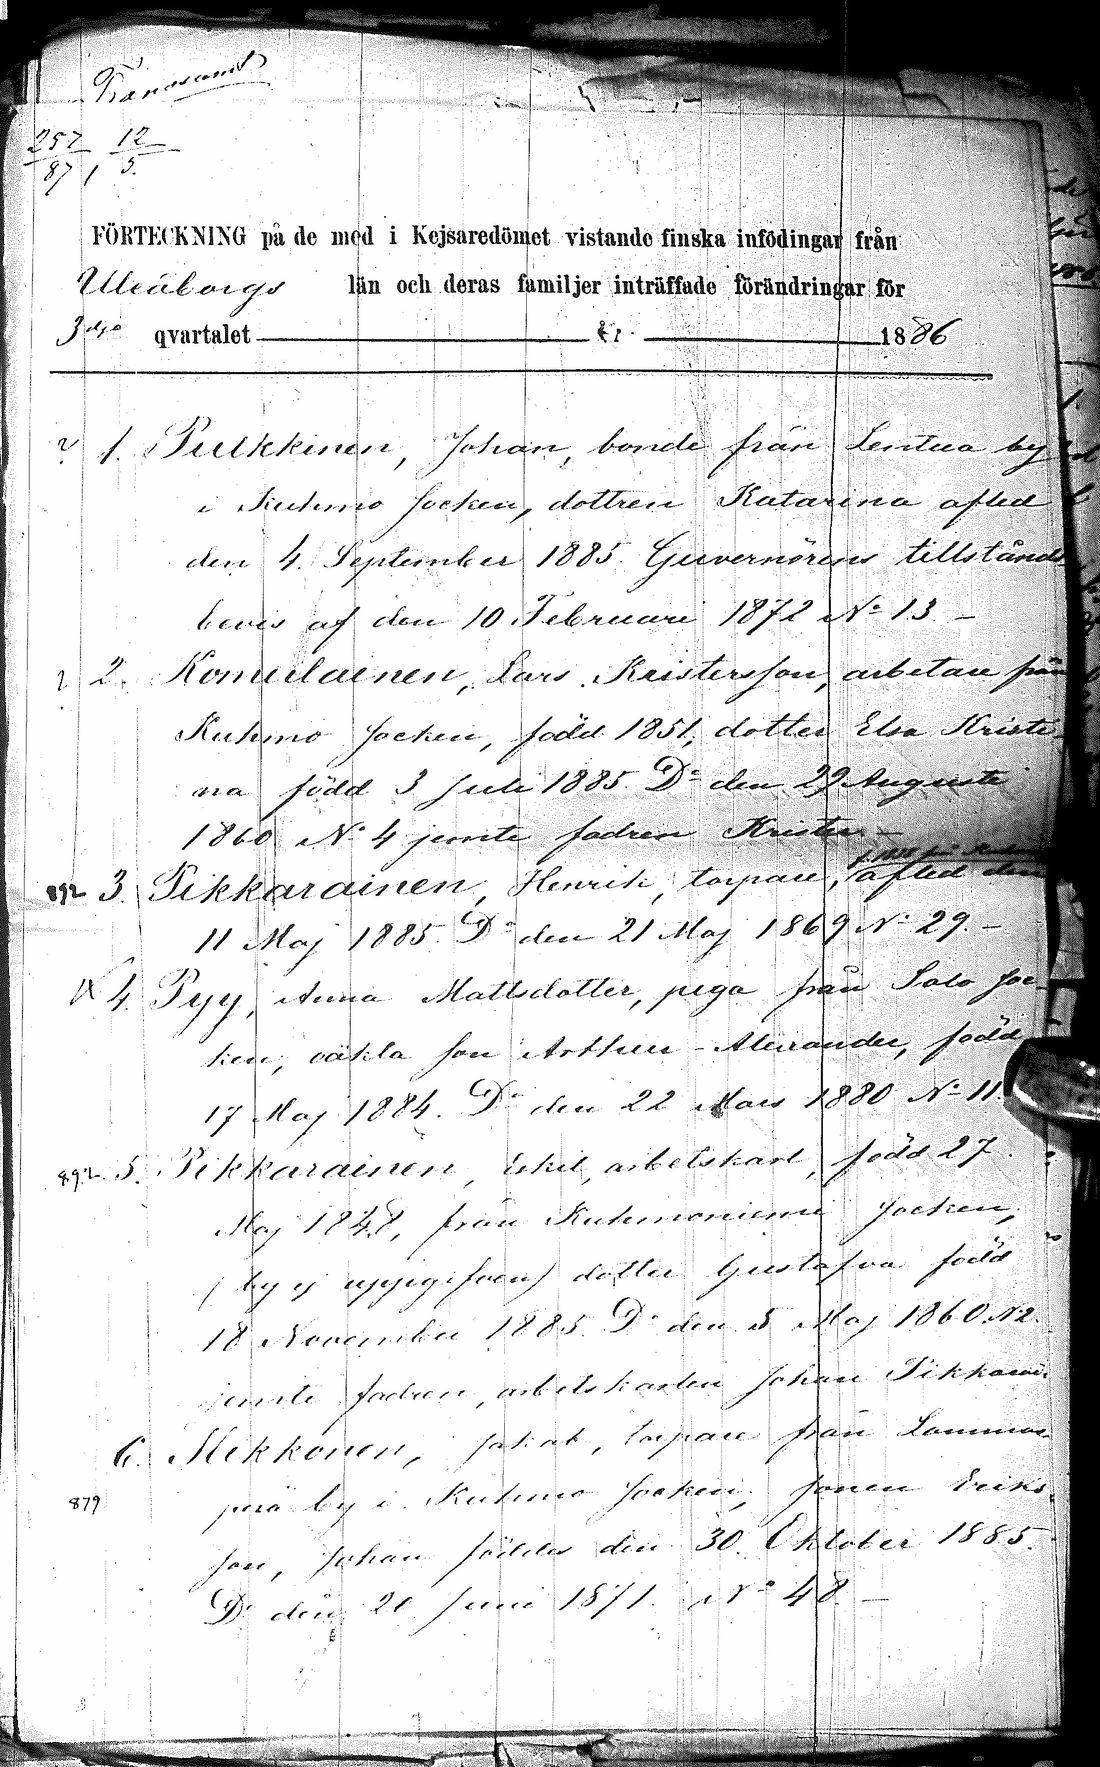 257 12
87 1 5.
FÖRTECKNING på de med i Kejsaredömet vistande finska infödingar från
Uleåborgs län och deras familjer inträffade förändringar för
3dje qvartalet år 1886
1. Pulkkinen, Johan, bonde från Lentua by
i Kuhmo socken, dottren Katarina afled
den 4. September 1885. Guvernörens tillstånds
bevis af den 10 Februari 1872 No 13. –
2. Komulainen, Lars Kristersson, arbetare från
Kuhmo socken, född 1851, dotter Elsa Kristi
na född 3 Juli 1885. Do den 29 Augusti
1860 No 4 jemte fadren Krister –
892 3. Pikkarainen, Henrik, torpare, afled den
11 Maj 1885. Do den 21 Maj 1869 No 29. –
4. Pyy, Anna Mattsdotter, piga från Salo soc-
ken, oäkta son Arthur Alexander, född
17 Maj 1884. Do den 22 Mars 1880 No 11.
892 5. Pikkarainen, Eskil, arbetskarl, född 27
Maj 1848, från Kuhmoniemi socken,
(by ej uppgifven) dotter Gustafva född
18 November 1885. Do den 5 Maj 1860 No 2.
jemte fadren, arbetskarlen Johan Pikkarai.
6. Mikkonen, Jakob, torpare från Lammas
879 perä by i Kuhmo socken, sonen Eriks
son, Johan föddes den 30. Oktober 1885.
Do den 20 Juni 1871. No 48 –